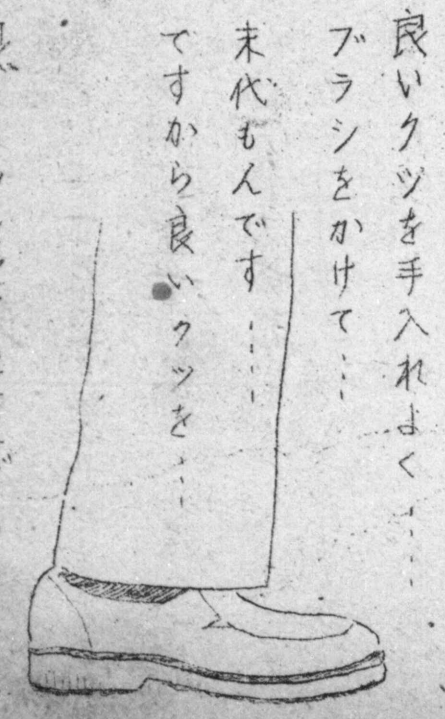 良いクツを手入れよく……
ブラシをかけて……
末代もんです……
ですから良いクツを……